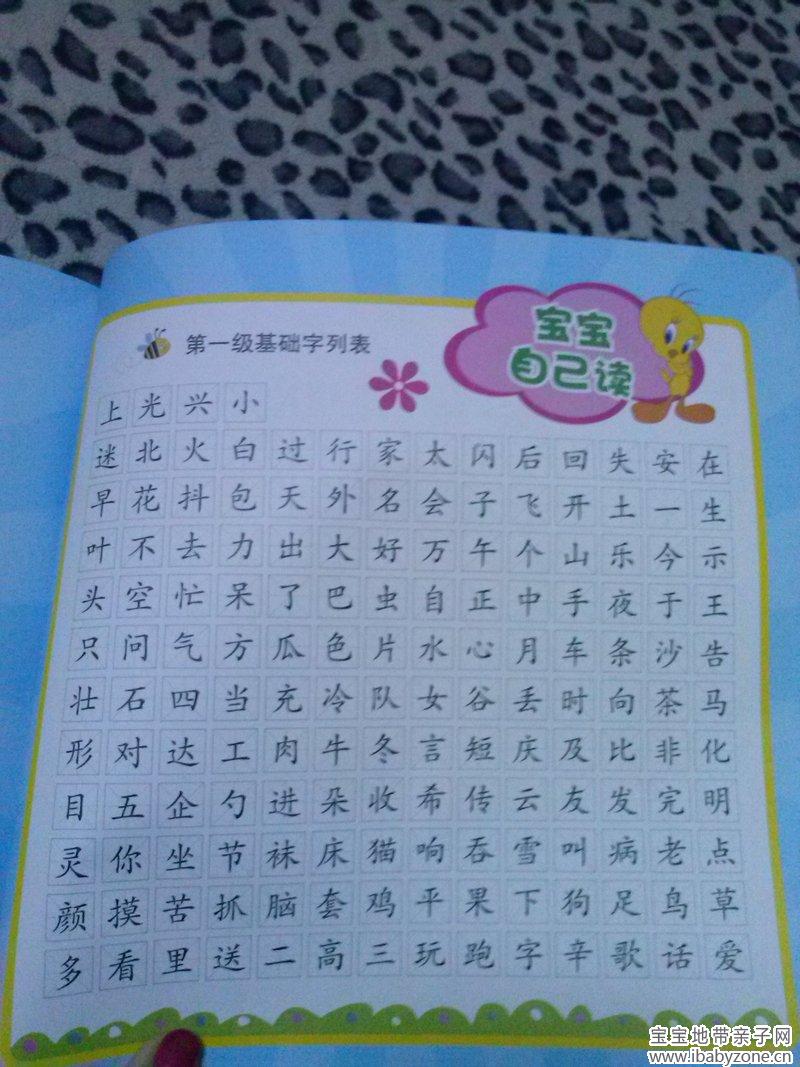 宝宝
自己读
第一级基础字列表
上光兴小
迷北火白过行家太闪后回失安在
早花抖包天外名会子飞开土一生
叶不去力出大好万午个山乐今示
头空忙呆了巴虫自正中手夜于王
只问气方瓜色片水心月车条沙告
壮石四当充冷队女谷丢时向茶马
形对达工肉牛冬言短庆及比非化
目五企勺进朵收希传云友发完明
灵你坐节袜床猫响吞雪叫病老点
颜摸苦抓脑套鸡平果下狗足鸟草
多看里送二高三玩跑字辛歌话爱
宝宝地带亲子网
www.ibabyzone.cn